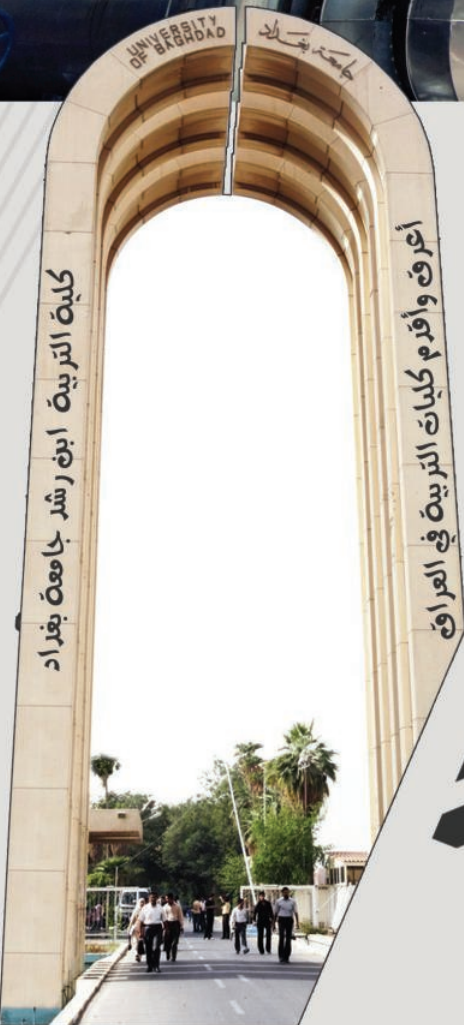 UNIVERSITY
OF BAGHDAD
جامعة بغداد
أعرق وأقدم كليات التربية في العراق
كلية التربية ابن رشد جامعة بغداد